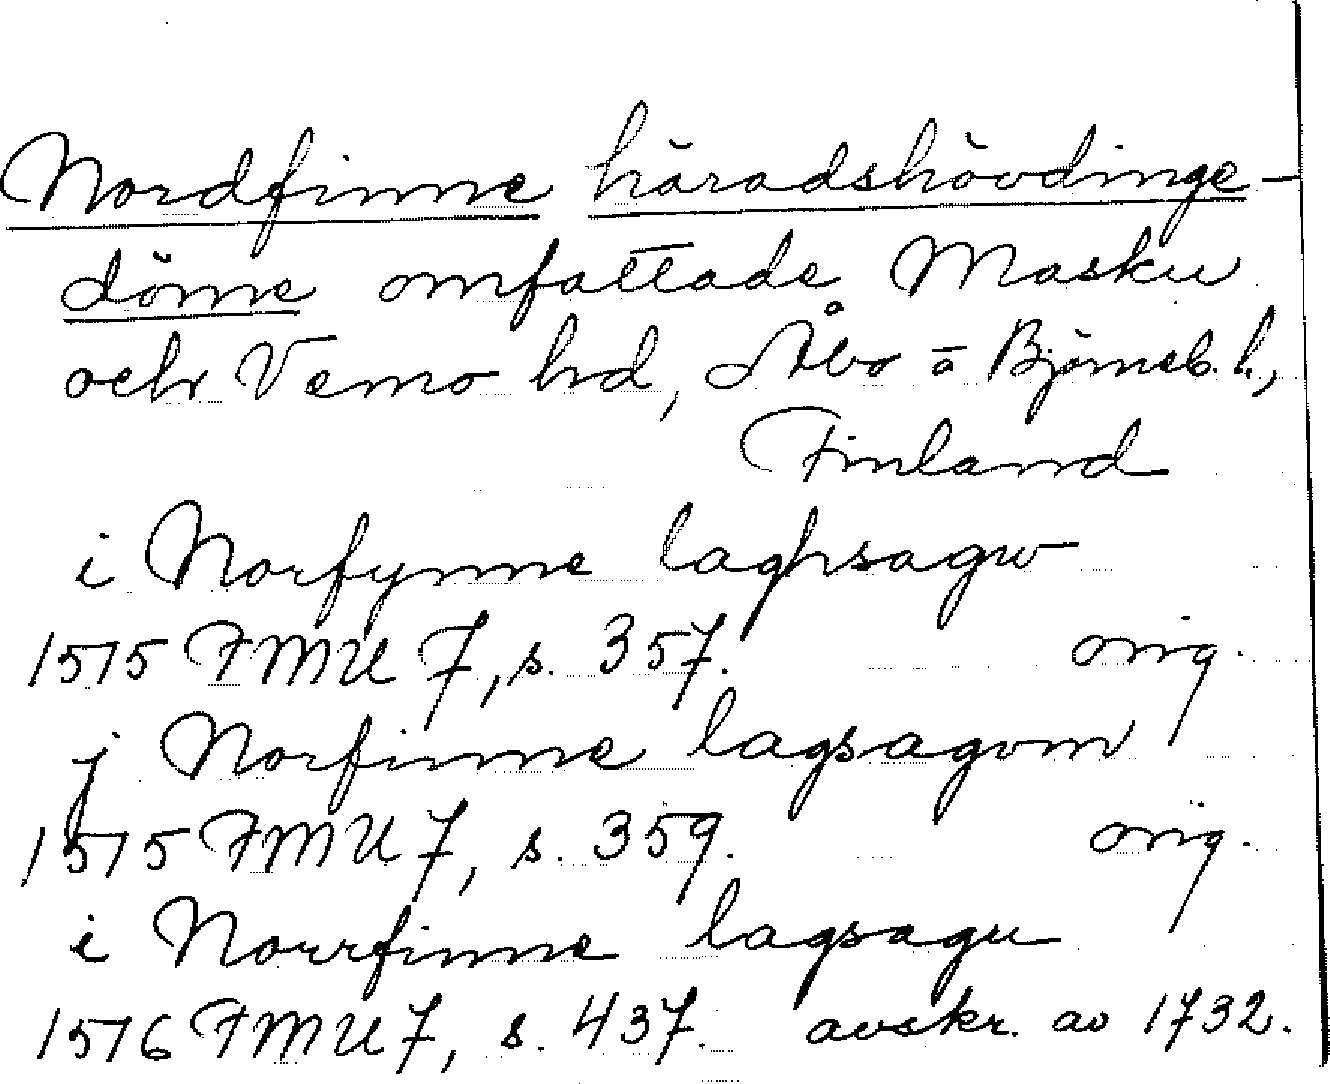 Nordfinne häradshövdinge-
döme omfattade Masku
och Vemo hd, Åbo o Björneb. l.,
Finland
i Norfynne laghsagw
1515 FMU 7, s. 357. orig.
j Norfinne lagsagom
1515 FMU 7, s. 359. orig.
i Norrfinne lagsagu
1516 FMU 7, s. 437. avskr. av 1732.